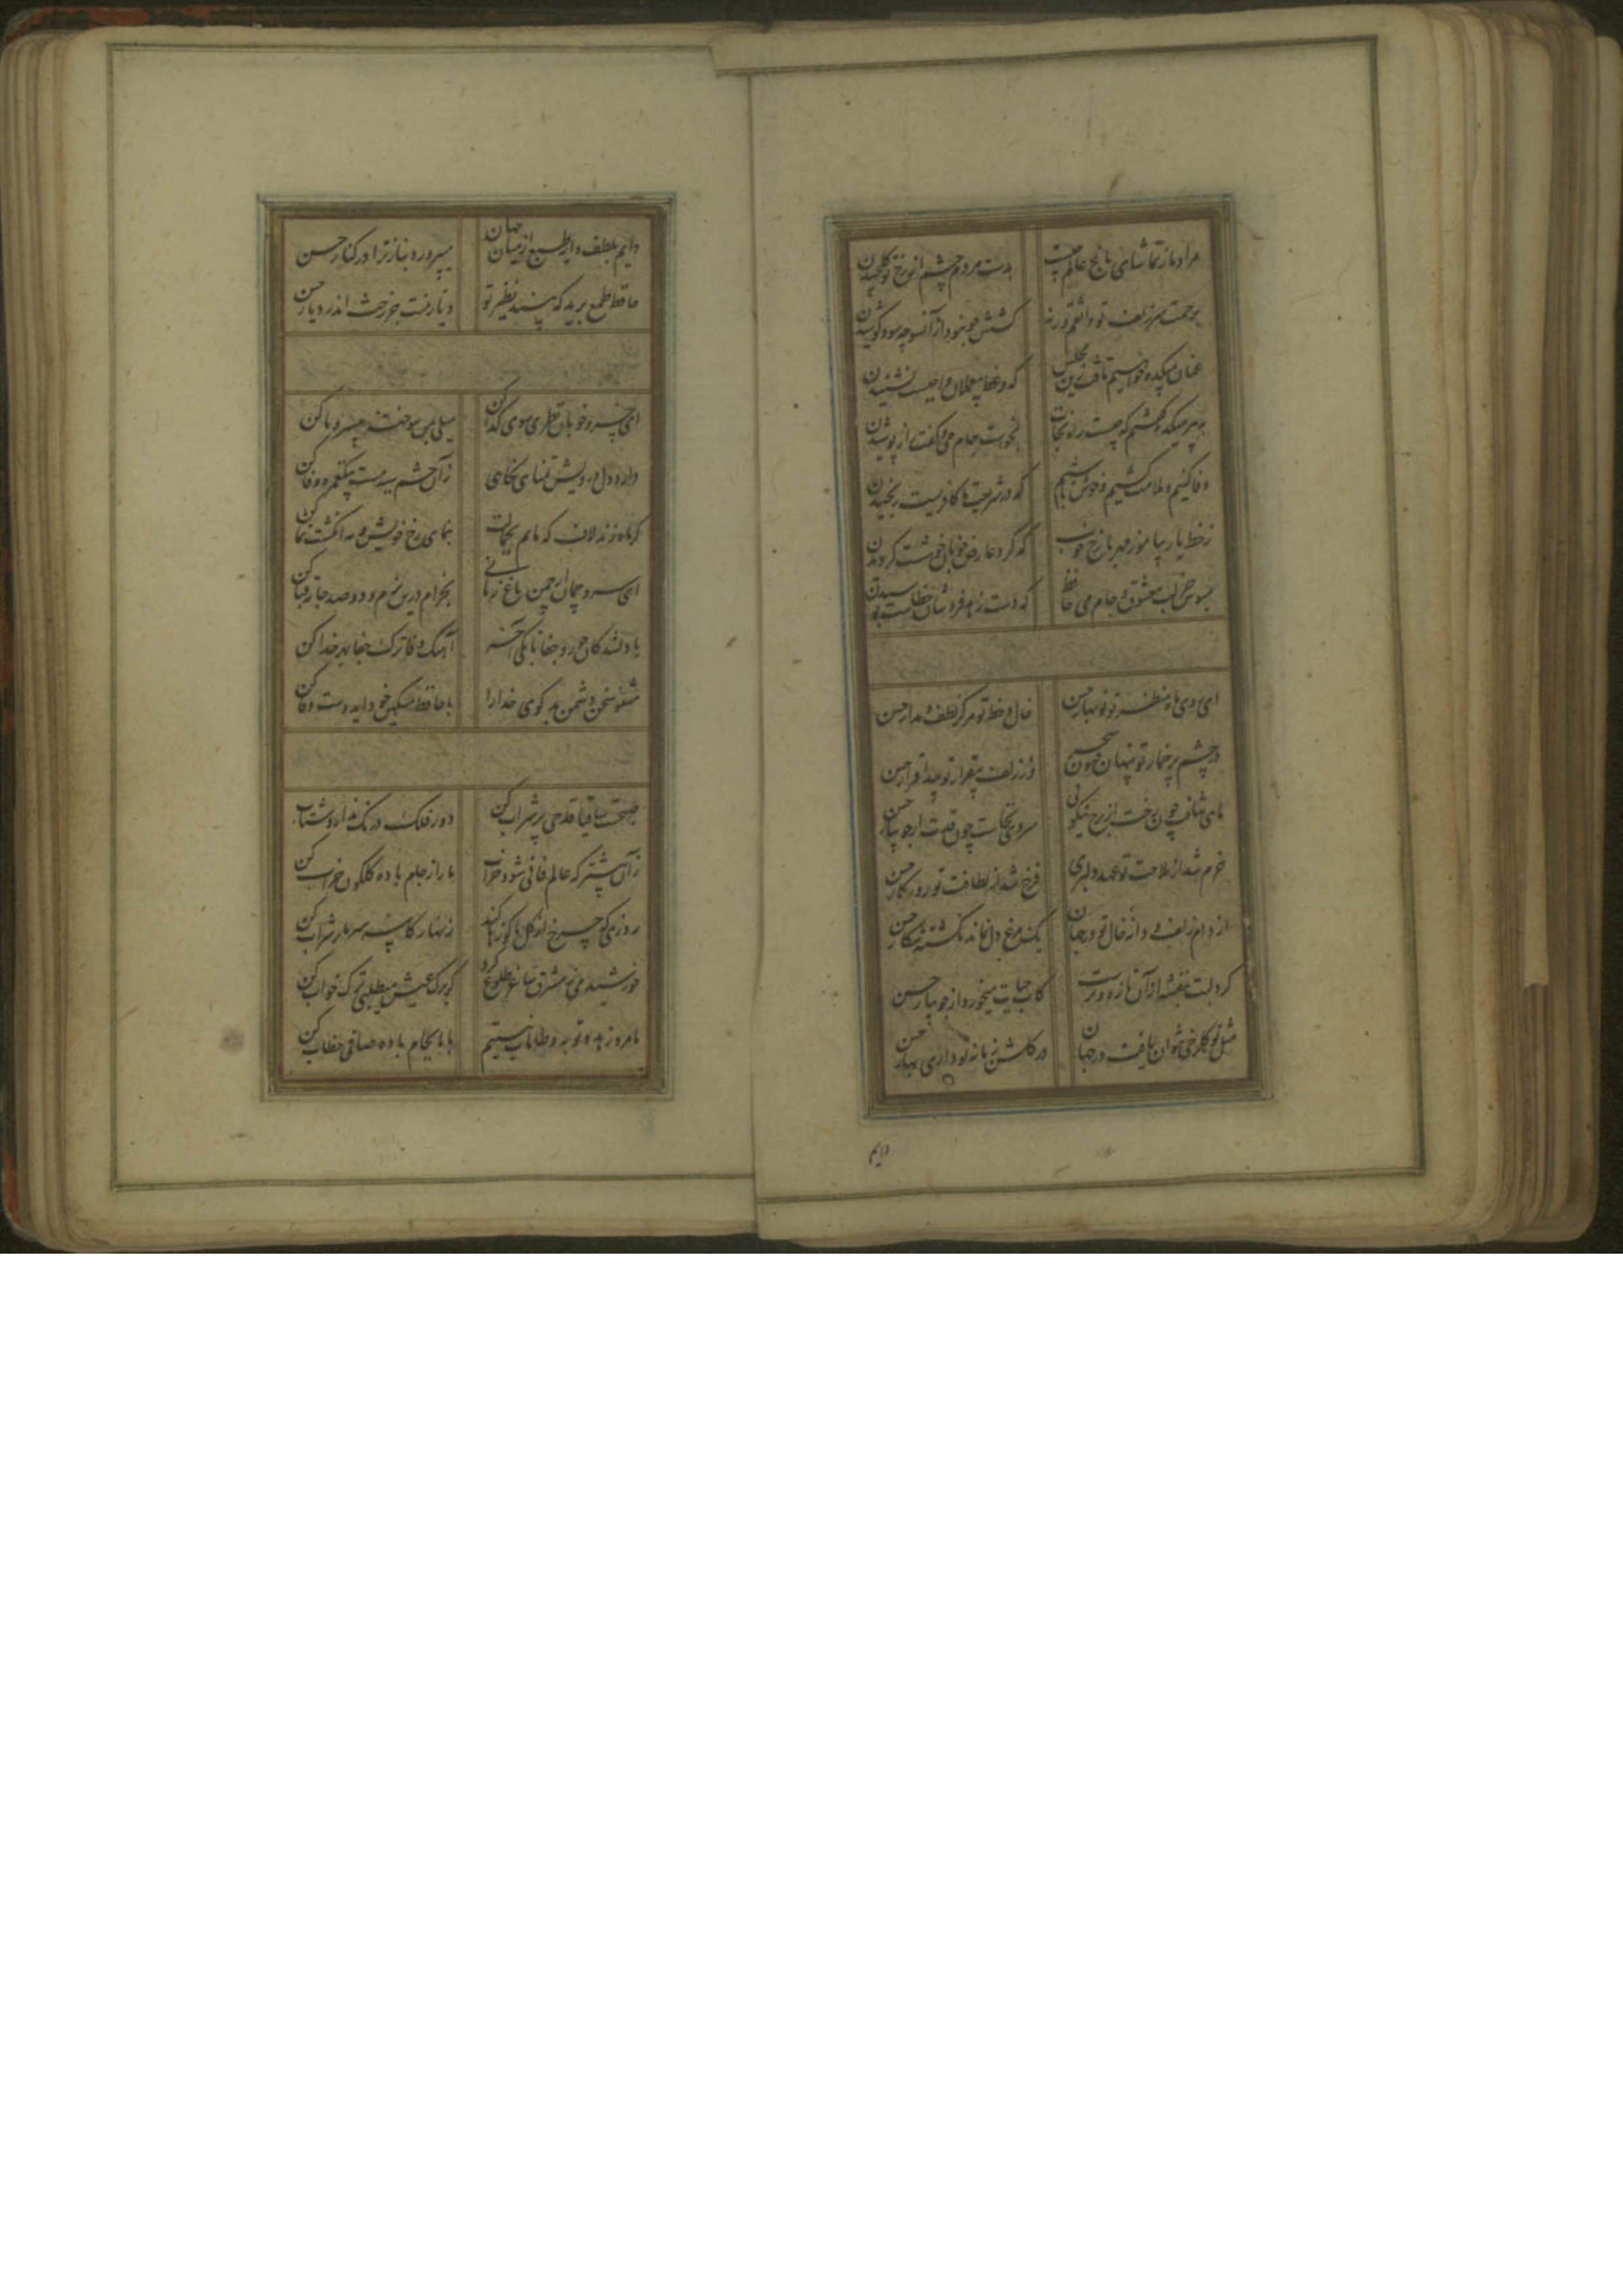 مراد ما ز تماشای باغ عالم چیست بدست مردم چشم از رخ تو گل چیدن
برحمت سر زلف تو واثقم ورنه کشش چو نبود از آنسو چه سود کوشیدن
عنان بمیکده خواهیم تافت زین مجلس که وعظ بیعملان واجبست نشنیدن
به پیر میکده گفتم که چیست راه نجات بخواست جام می و گفت راز پوشیدن
وفا کنیم و ملامت کشیم و خوش باشیم که در شریعت ما کافریست رنجیدن
ز خط یار بیاموز مهر با رخ خوب که گرد عارض خوبان خوشست گردیدن
مبوس جز لب معشوق و جام می حافظ که دست زهد فروشان خطاست بوسیدن
ای روی ماه منظر تو نوبهار حسن خال و خط تو مرکز لطف و مدار حسن
در چشم پر خمار تو پنهان فسون سحر در زلف بیقرار تو پیدا قرار حسن
ماهی نتافت چون رخت از برج نیکویی سروی نخاست چون قدت از جویبار حسن
خرم شد از ملاحت تو عهد دلبری فرخ شد از لطافت تو روزگار حسن
از دام زلف و دانه خال تو در جهان یک مرغ دل نماند نگشته شکار حسن
گرد لبت بنفشه از آن تازه و ترست کاب حیات میخورد از جویبار حسن
مثل تو گلرخی نتوان یافت در جهان در گلشن زمانه تو داری بهار حسن
دایم
دایم بلطف دایه طبع از میان جهان میپرورد بناز ترا در کنار حسن
حافظ طمع برید که بیند نظیر تو دیار نیست جز رخت اندر دیار حسن
ای خسرو خوبان نظری سوی گدا کن میلی بمن سوخته بی سر و پا کن
دارد دل درویش تمنای نگاهی زان چشم سیه مست بیکغمزه روا کن
گر ماه زند لاف که مانم بجمالت بنمای رخ خویش و مه انگشت نما کن
ای سرو چمان از چمن باغ زمانی بخرام درین بزم و دو صد جامه قبا کن
با دلشدگان جور و جفا تا بکی آخر آهنگ وفا ترک جفا بهر خدا کن
مشنو سخن دشمن بدگوی خدا را با حافظ مسکین خود ایدوست وفا کن
صبحست ساقیا قدحی پر شراب کن دور فلک درنگ ندارد شتاب کن
زان پیشتر که عالم فانی شود خراب ما را ز جام باده گلگون خراب کن
روزی که چرخ از گل ما کوزه ها کند زنهار کاسه سر ما پر شراب کن
خورشید می ز مشرق ساغر طلوع کرد گر برگ عیش میطلبی ترک خواب کن
ما مرد زهد و توبه و طامات نیستیم با ما بجام باده صافی خطاب کن